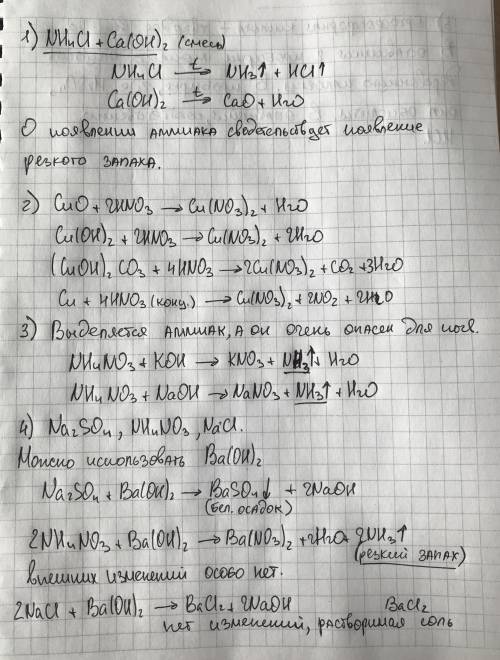 1) NH4Cl + Ca(OH)2 (смесь)
NH4Cl —t→ NH3↑ + HCl↑
Ca(OH)2 —t→ CaO + H2O
О появлении аммиака свидетельствует появление
резкого запаха.
2) CuO + 2HNO3 → Cu(NO3)2 + H2O
Cu(OH)2 + 2HNO3 → Cu(NO3)2 + 2H2O
(CuOH)2CO3 + 4HNO3 → 2Cu(NO3)2 + CO2 + 3H2O
Cu + 4HNO3 (конц.) → Cu(NO3)2 + 2NO2 + 2H2O
3) Выделяется аммиак, а он очень опасен для
NH4NO3 + KOH → KNO3 + NH3↑ + H2O
NH4NO3 + NaOH → NaNO3 + NH3↑ + H2O
4) Na2SO4, NH4NO3, NaCl.
Можно использовать Ba(OH)2
Na2SO4 + Ba(OH)2 → BaSO4↓ + 2NaOH
(бел. осадок)
2NH4NO3 + Ba(OH)2 → Ba(NO3)2 + 2H2O + 2NH3↑
(резкий запах)
внешних изменений особо нет.
2NaCl + Ba(OH)2 → BaCl2 + 2NaOH BaCl2
нет изменений, растворимая соль